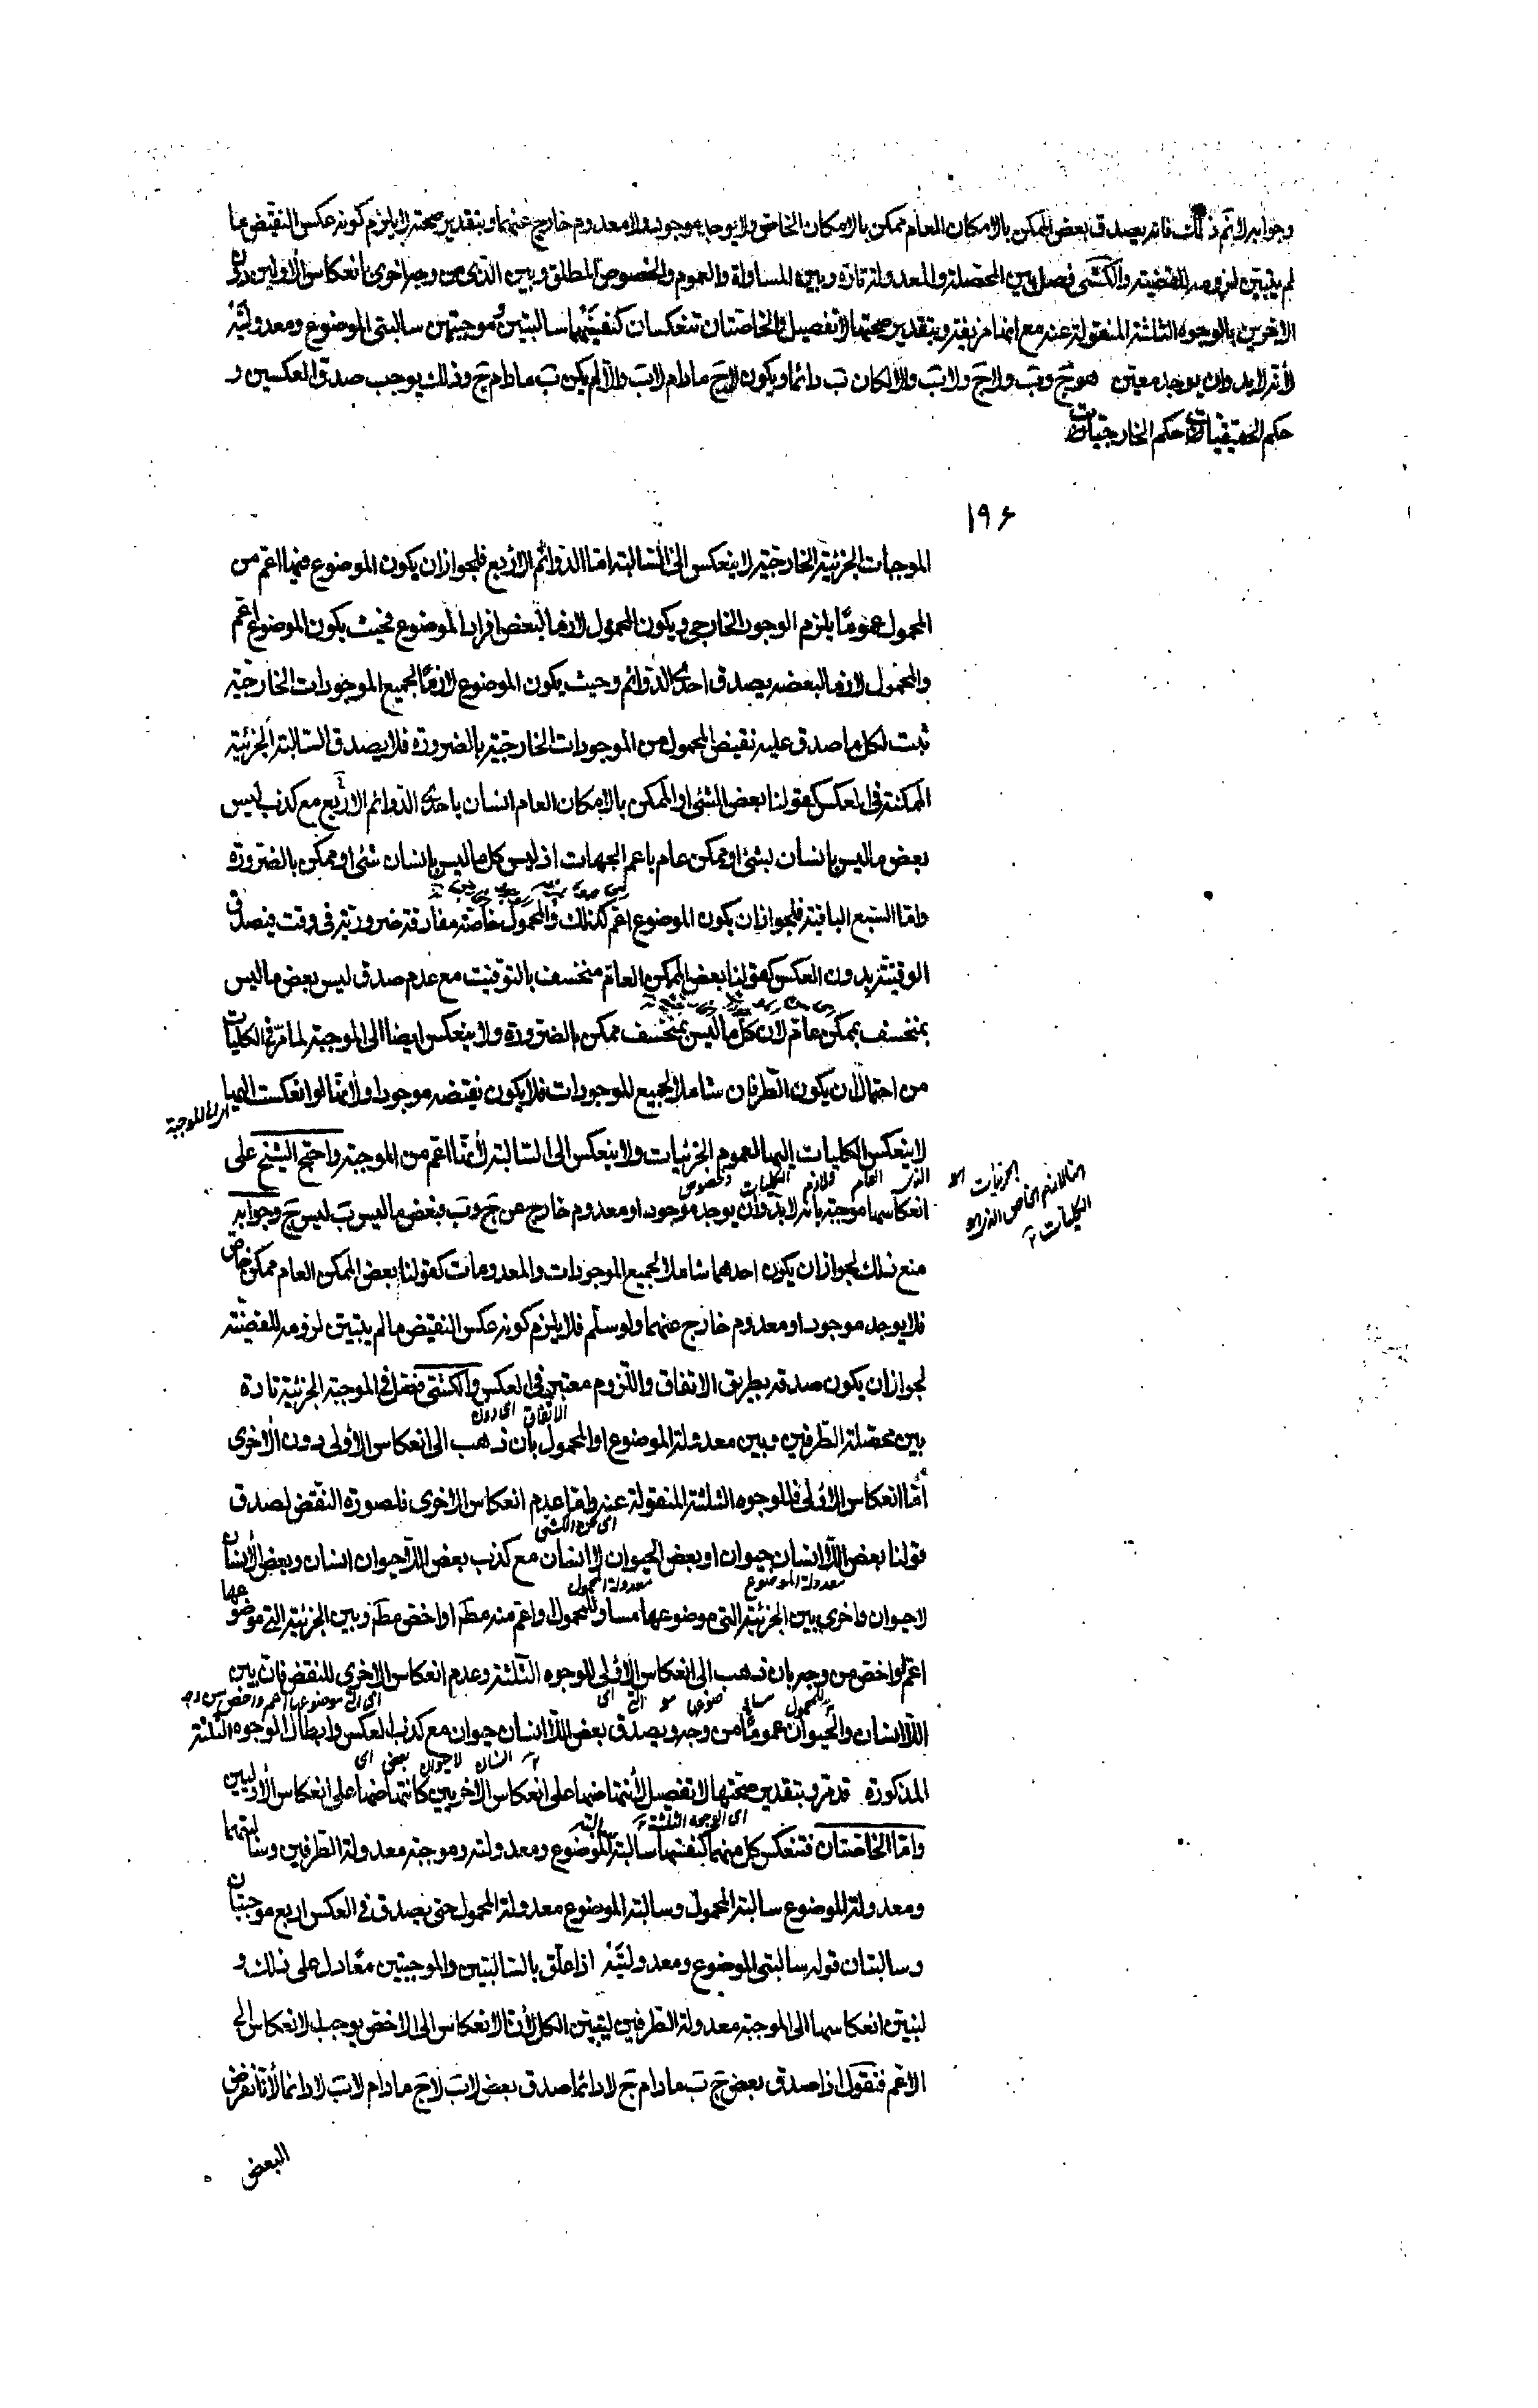 وجوابه لا نم ذلك فانه يصدق بعض الممكن بالامكان العام ممكن بالامكان الخاص ولا يوجد موجود ولا معدوم خارج عنهما وبتقدير صحته لا يلزم كونه عكس النقيض ما
لم يتبين لزومه للقضية والكشى فصل بين المحصلة والمعدولة تارة وبين المساواة والعموم والخصوص المطلق وبين الذى من وجه اخرى انعكاس الاولين دون
الاخريين بالوجوه الثلثة المنقولة عنه مع انها مزيفة وبتقدير صحتها لا تفصيل والخاصتان تنعكسان كنفسيهما سالبتين وموجبتين سالبتى الموضوع ومعدولتيه
لأنه لابد وان يوجد معين هو ج وب ولا ج ولا ب والا لكان ب دائما ويكون لا ج مادام لا ب والا لم يكن ب مادام ج وذلك يوجب صدق العكسين و
حكم الحقيقيات حكم الخارجيات
١٩۶
الموجبات الجزئية الخارجية لا ينعكس الى السالبة اما الدوائم الاربع فلجواز ان يكون الموضوع فيها اعم من
المحمول عموما يلزم الوجود الخارجى ويكون المحمول لازما لبعض افراد الموضوع فحيث يكون الموضوع اعم
والمحمول لازما لبعضه يصدق احدى الدوائم وحيث يكون الموضوع لازما لجميع الموجودات الخارجية
ثبت لكل ما صدق عليه نقيض المحمول من الموجودات الخارجية بالضرورة فلا يصدق السالبة الجزئية
الممكنة فى العكس كقولنا بعض الشئ او الممكن بالامكان العام انسان باحدى الدوائم الاربع مع كذب ليس
بعض ما ليس بانسان بشئ او ممكن عام باعم الجهات اذ ليس كل ما ليس بانسان شئ او ممكن بالضرورة
واما السبع الباقية فلجواز ان يكون الموضوع اعم كذلك والمحمول خاصة مفارقة ضرورية فى وقت فيصدق
الوقتية بدون العكس كقولنا بعض الممكن العام منخسف بالتوقيت مع عدم صدق ليس بعض ما ليس
بمنخسف بممكن عام لان كل ما ليس بمنخسف ممكن بالضرورة ولا ينعكس ايضا الى الموجبة لما مر فى الكليات
من احتمال ان يكون الطرفان شاملا لجميع الموجودات فلا يكون نقيضه موجودا ولأنها لو انعكست اليها
اى الى الموجبة
لا ينعكس الكليات اليها لعموم الجزئيات ولا ينعكس الى السالبة لأنها اعم من الموجبة واحتج الشيخ على
انعكاسها موجبة بانه لابد وان يوجد موجود او معدوم خارج عن ج وب فبعض ما ليس ب ليس ج وجوابه
منع ذلك لجواز ان يكون احدهما شاملا لجميع الموجودات والمعدومات كقولنا بعض الممكن العام ممكن خاص
فلا يوجد موجود او معدوم خارج عنهما ولو سلم فلا يلزم كونه عكس النقيض ما لم يتبين لزومه للقضية
لجواز ان يكون صدقه بطريق الاتفاق واللزوم معتبر فى العكس والكشى فصل فى الموجبة الجزئية تارة
اى دون الاتفاق
بين محصلة الطرفين وبين معدولة الموضوع او المحمول بان ذهب الى انعكاس الأولى دون الأخرى
اما انعكاس الأولى فللوجوه الثلثة المنقولة عنه واما عدم انعكاس الاخرى فلصورة النقض لصدق
اى عن الكشى
قولنا بعض اللاانسان حيوان او بعض الحيوان لا انسان مع كذب بعض اللاحيوان انسان وبعض الأنسان
معدولة الموضوع معدولة المحمول
لا حيوان واخرى بين الجزئية التى موضوعها مساو للمحمول او اعم منه مطم او اخص مطم وبين الجزئية التى موضوعها
اعم او اخص من وجه بان ذهب الى انعكاس الأولى للوجوه الثلثة وعدم انعكاس الاخرى للنقض فان بين
اى التى موضوعها اعم واخص من وجه
اللاانسان والحيوان عموما من وجه ويصدق بعض اللاانسان حيوان مع كذب العكس وابطال الوجوه الثلثة
اى بعض لا حيوان انسان
المذكورة قد مر وبتقدير صحتها لا تفصيل لأنتهاضها على انعكاس الاخريين كانتهاضها على انعكاس الأوليين
اى الوجوه الثلثة
واما الخاصتان فتنعكس كل منهما كنفسها سالبة الموضوع ومعدولته وموجبة معدولة الطرفين وسالبتهما
ومعدولة الموضوع سالبة المحمول وسالبة الموضوع معدولة المحمول حتى يصدق فى العكس اربع موجبتان
وسالبتان قوله سالبتى الموضوع ومعدولتيه اذا علق بالسالبتين والموجبتين معا دل على ذلك و
لنبين انعكاسها الى الموجبة معدولة الطرفين ليتبين الكل لأن الانعكاس الى الاخص يوجب الانعكاس الى
الاعم فنقول اذا صدق بعض ج ب مادام ج لا دائما صدق بعض لا ب لا ج مادام لا ب لا دائما لأنا نفرض
البعض